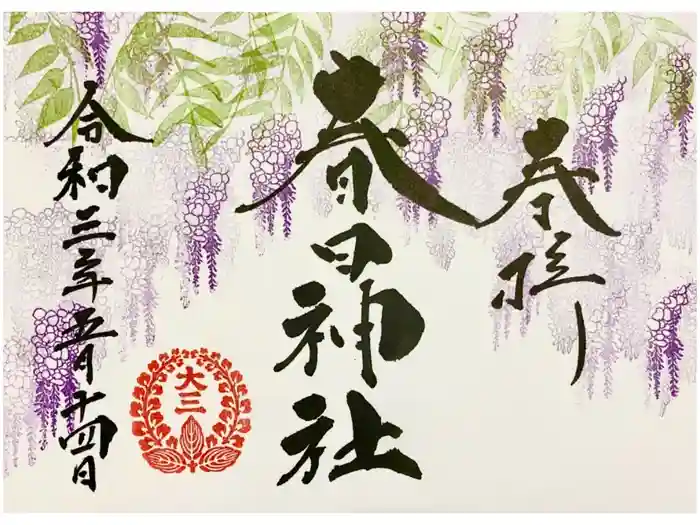 奉拝
春日神社
令和三年五月十四日
大三